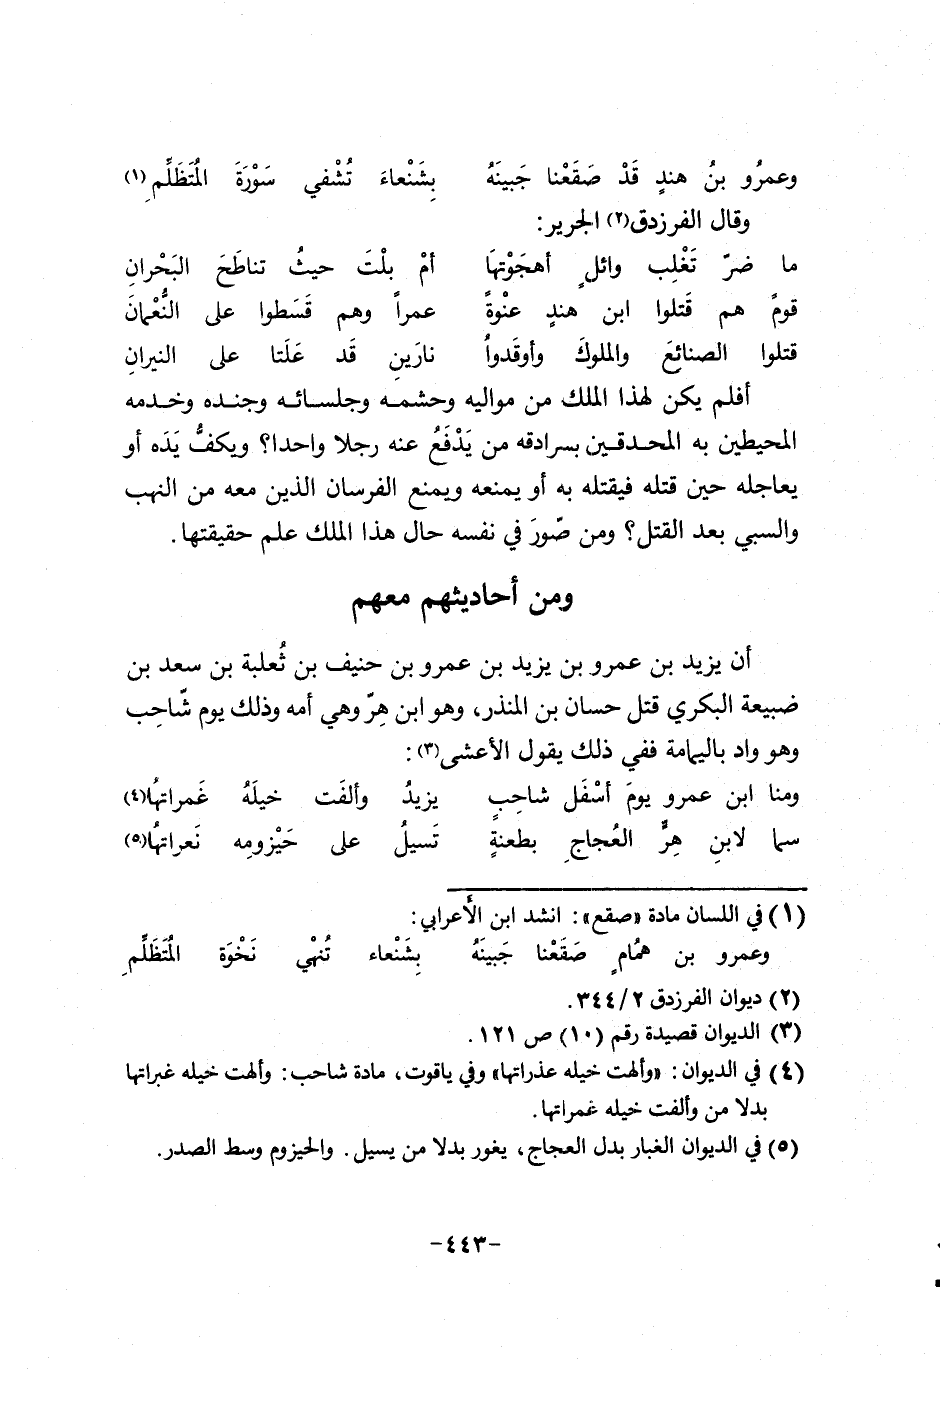 وعمرُو بنُ هندٍ قَدْ صَقَعْنا جَبينَهُ بِشَنْعاءَ تُشْفي سَوْرَةَ المُتَظَلِّمِ(١)
وقال الفرزدق(٢) الجرير:
ما ضرّ تَغْلِب وائلٍ أهجَوْتهَا أمْ بلْتَ حيثُ تناطَحَ البَحْرانِ
قومٌ هم قَتلوا ابن هندٍ عنْوةً عمراً وهم قَسَطوا على النُّعْمانَ
قتلوا الصنائعَ والملوكَ وأوقَدواُ نارَينِ قَد عَلَتا على النيرانِ
أفلم يكن لهذا الملك من مواليه وحشمه وجلسائه وجنده وخدمه
المحيطين به المحدقين بسرادقه من يَدْفَعُ عنه رجلا واحدا؟ ويكفُّ يَدَه أو
يعاجله حين قتله فيقتله به أو يمنعه ويمنع الفرسان الذين معه من النهب
والسبي بعد القتل؟ ومن صّورَ في نفسه حال هذا الملك علم حقيقتها.
ومن أحاديثهم معهم
أن يزيد بن عمرو بن يزيد بن عمرو بن حنيف بن ثُعلبة بن سعد بن
ضبيعة البكري قتل حسان بن المنذر، وهو ابن هِرّ وهي أمه وذلك يوم شّاحِب
وهو واد باليمامة ففي ذلك يقول الأعشى(٣):
ومنا ابن عمرو يومَ أسْفَل شاحبٍ يزيدُ وألفَت خيلَهُ غَمراتهُا(٤)
سما لابنِ هِرٍّ العُجاجِ بطعنةٍ تَسيلُ على حَيْزومِه نَعراتهُا(٥)
(١) في اللسان مادة «صقع»: انشد ابن الأعرابي:
وعمرو بن همُامٍ صَقَعْنا جَبينَهُ بشَنْعاء تُنهْي نَخْوَة المُتَظَلِّمِ
(٢) ديوان الفرزدق ٣٤٤/٢.
(٣) الديوان قصيدة رقم (١٠) ص ١٢١.
(٤) في الديوان: «وألهت خيله عذراتها» وفي ياقوت، مادة شاحب: وألهت خيله غبراتها
بدلا من وألفت خيله غمراتها.
(٥) في الديوان الغبار بدل العجاج، يغور بدلا من يسيل. والحيزوم وسط الصدر.
-٤٤٣-